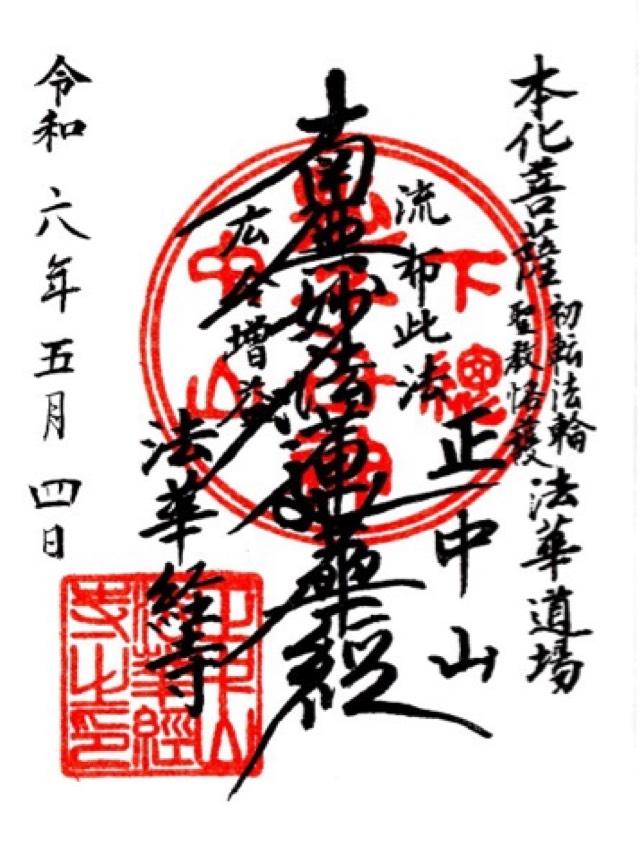 本化菩薩
初転法輪
聖教恪護
法華道場
正中山
流布此法
南無妙法蓮華経
広令増益
法華経寺
令和六年五月四日
下總
中山
正中山
法華經
寺之印